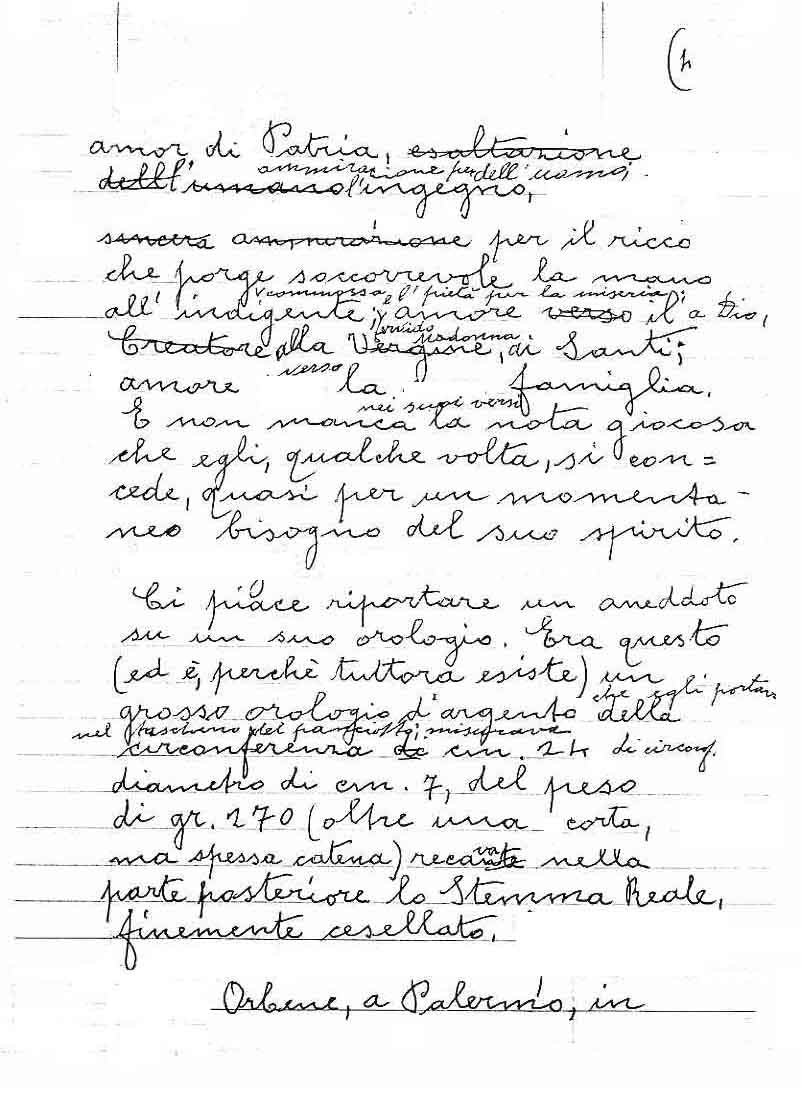 (4
amor di Patria, esaltazione
ammirazione per dell'uomo;
dell'umano l'ingegno,
sincera ammirazione per il ricco
che porge soccorrevole la mano
commossa e l' pietà per la miseria;
all'indigente; amore verso il a Dio,
fervido Madonna
Creatore alla Vergine, ai Santi;
verso
amore la famiglia.
nei suoi versi
E non manca la nota giocosa
che egli, qualche volta, si con=
cede, quasi per un momenta-
neo bisogno del suo spirito.
Ci piace riportare un aneddoto
su un suo orologio. Era questo
(ed è, perchè tuttora esiste) un
che egli portava
grosso orologio d'argento della
nel taschino del panciotto; misurava
circonferenza de cm. 24 di circonf.
diametro di cm. 7, del peso
di gr. 170 (oltre una corta,
va
ma spessa catena) recante nella
parte posteriore lo Stemma Reale,
finemente cesellato.
Orbene, a Palermo, in